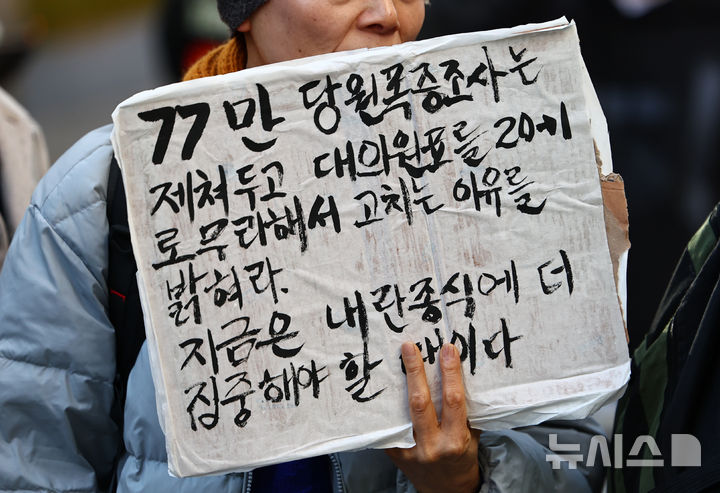 77만 당원폭증조사는
제쳐두고 대의원표를 20에
로무라해서 고치는 이유를
밝혀라.
지금은 내란종식에 더
집중해야 할 때이다
뉴시스